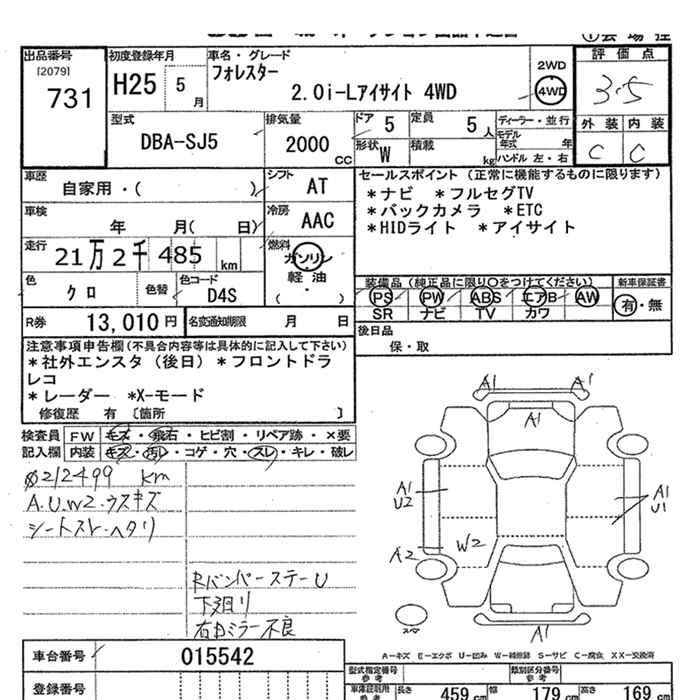 出品番号 [2079] 731
初度登録年月 H25 5 月
車名・グレード フォレスター 2.0i-Lアイサイト 4WD
2WD 4WD
評価点 3.5
外装 内装 C C
型式 DBA-SJ5
排気量 2000 CC
ドア 5
定員 5 人
形状 W
積載 kg
ディーラー・並行
モデル年式 年
ハンドル 左・右
車歴 自家用・( )
シフト AT
車検 年 月( 日)
冷房 AAC
走行 21万2千485 km
燃料 ガソリン 軽油 ( ・ )
色 クロ
色替
色コード D4S
R券 13,010円
名変通知期限 月 日
セールスポイント (正常に機能するものに限ります)
*ナビ *フルセグTV
*バックカメラ *ETC
*HIDライト *アイサイト
装備品 (純正品に限り○をつけてください)
新車保証書
PS PW ABS エアB AW
SR ナビ TV カワ
有・無
後日品
保・取
注意事項申告欄(不具合内容等は具体的に記入して下さい)
*社外エンスタ(後日) *フロントドラ
レコ
*レーダー *X-モード
修復歴 有 〔箇所 〕
検査員 FW キズ・飛石・ヒビ割・リペア跡・×要
記入欄 内装 キズ・汚レ・コゲ・穴・スレ・キレ・破レ
212499 km
A.U.W2.ウスキズ
シートスレ・ヘタリ
RバンパーステーU
下廻リ
右Dミラー不良
A1 A1
A1
A1 U2
A1 U1
A2
W2
スペア
A1
A-キズ E-エクボ U-凹み W-補修跡 S-サビ C-腐食 XX-交換済
車台番号 015542
登録番号
型式指定番号 参考
類別区分番号 参考
長さ 459 cm 幅 179 cm 高さ 169 cm